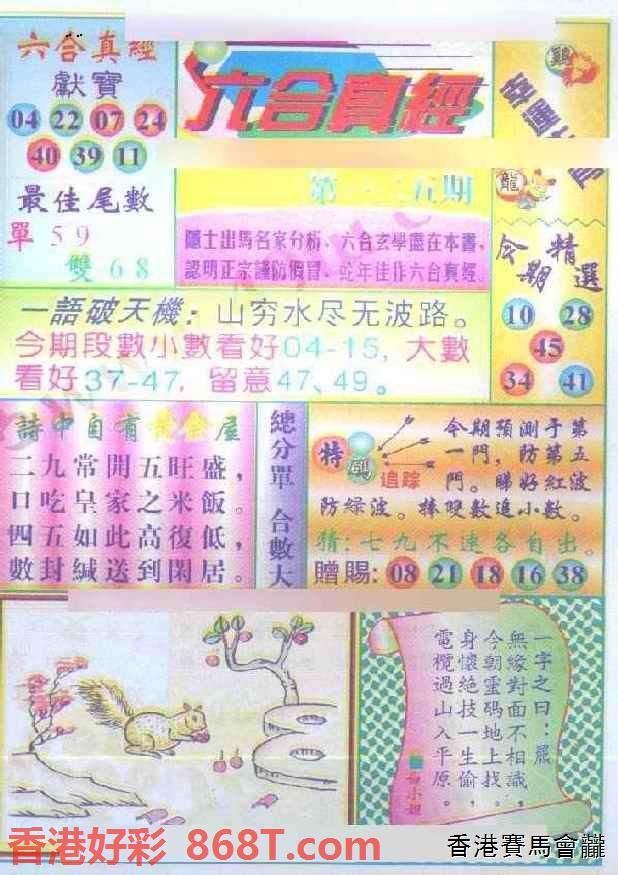 六合真經
獻寶
04 22 07 24
40 39 11
最佳尾數
單 5 9
雙 6 8
六合真經
五期
隱士出馬名家分析、六合玄學盡在本書、
認明正宗謹防假冒、蛇年佳作六合真經
雞
龍
今期精選
10 28
45
34 41
一語破天機：山穷水尽无波路。
今期段數小數看好04-15, 大數
看好37-47, 留意47、49。
詩中自有黃金屋
二九常開五旺盛，
口吃皇家之米飯。
四五如此高復低，
數封緘送到閑居。
總分單 合數大
特碼
追踪
今期預測于第
一門，防第五
門。睇好紅波
防綠波。捧雙數追小數。
猜:七九不連各自出。
贈賜: 08 21 18 16 38
一字之曰：羆
無緣對面不相識，
今朝靈碼地上找。
身懷絕技一生偷，
電欖過山入平原。
香港好彩 868T.com
香港賽馬會